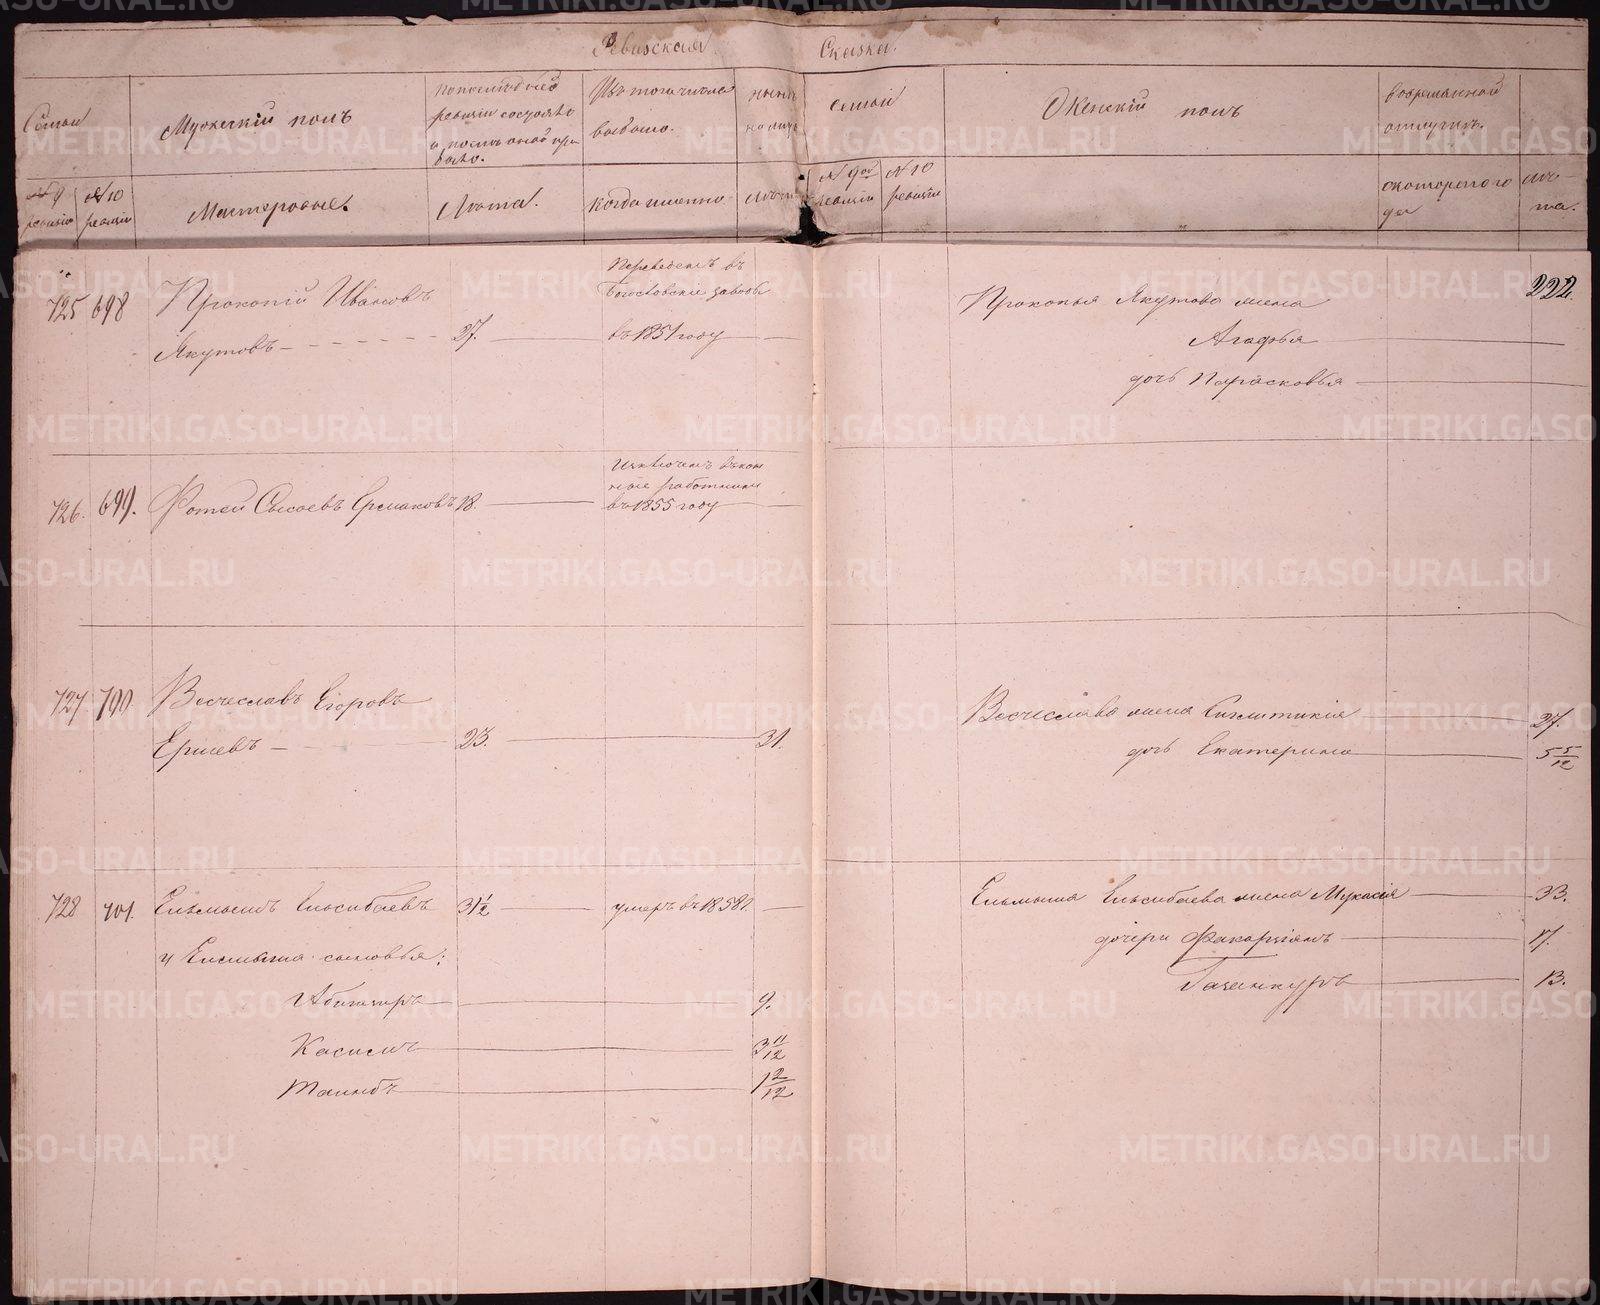 Ревизская Сказка.
Семьи
Мужескій полъ
по последней
ревизіи состояло
и после оной при
было.
Изъ того числа
выбыло.
ныне
на лицо
Семьи
Женскій полъ
во временной
отлучке.
№ 9 ревизіи
№ 10 ревизіи
Мастеровые.
Лета.
когда именно
лета
№ 9ой ревизіи
№ 10 ревизіи
съ котораго го
да
ле-
та.
222.
725 698 Прокопій Ивановъ
Якутовъ 27.
Переведенъ въ
Богословскіе заводы
въ 1851 году
Прокопья Якутова жена
Агафья
дочь Парасковья
726. 699. Фотей Сысоевъ Ермаковъ 18.
Исключенъ въ кон
ные работники
въ 1855 году
727 700. Вячеславъ Егоровъ
Ершевъ 23. 31.
Вячеслава жена 27.
дочь Екатерина 5 5/12
728 701. 31 1/2 умеръ въ 1858 г.
жена 33.
и сыновья:
дочери 17.
13.
9.
Касимъ 3 11/12
1 2/12
METRIKI.GASO-URAL.RU